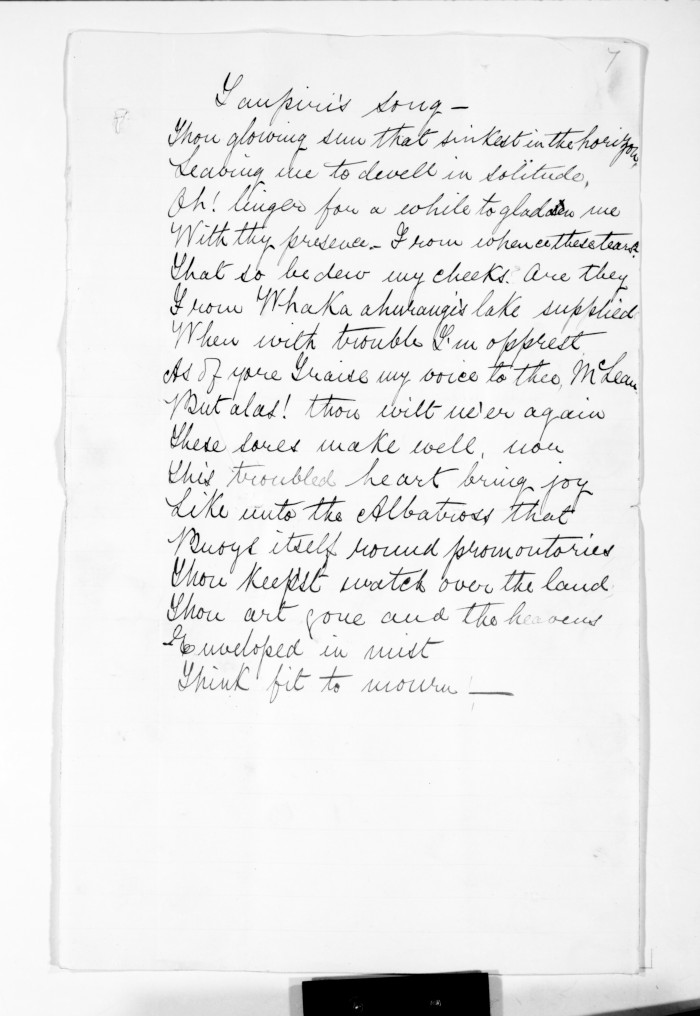 7
Taupiri's song —
Thou glowing sun that sinkest in the horizon,
Leaving me to dwell in solitude,
Oh! linger for a while to gladden me
With thy presence – From whence these tears?
That so bedew my cheeks. Are they
From Whaka ahurangi's lake supplied
When with trouble I'm opprest
As of yore I raise my voice to thee, McLean
But alas! thou wilt ne'er again
These sores make well, nor
This troubled heart bring joy
Like unto the Albatross that
Buoys itself round promontories
Thou keep'st watch over the land
Thou art gone and the heavens
Enveloped in mist
Think fit to mourn! —